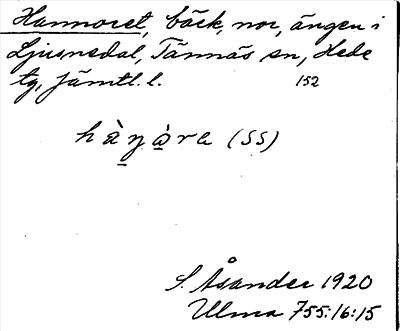 Hannoret, bäck, nor, ängen i
Ljusnedal, Tännäs sn, Hede
tg, Jämtl. l. 152
hàn̠à̠re (SS)
S. Åsander 1920
Ulma 755:16:15